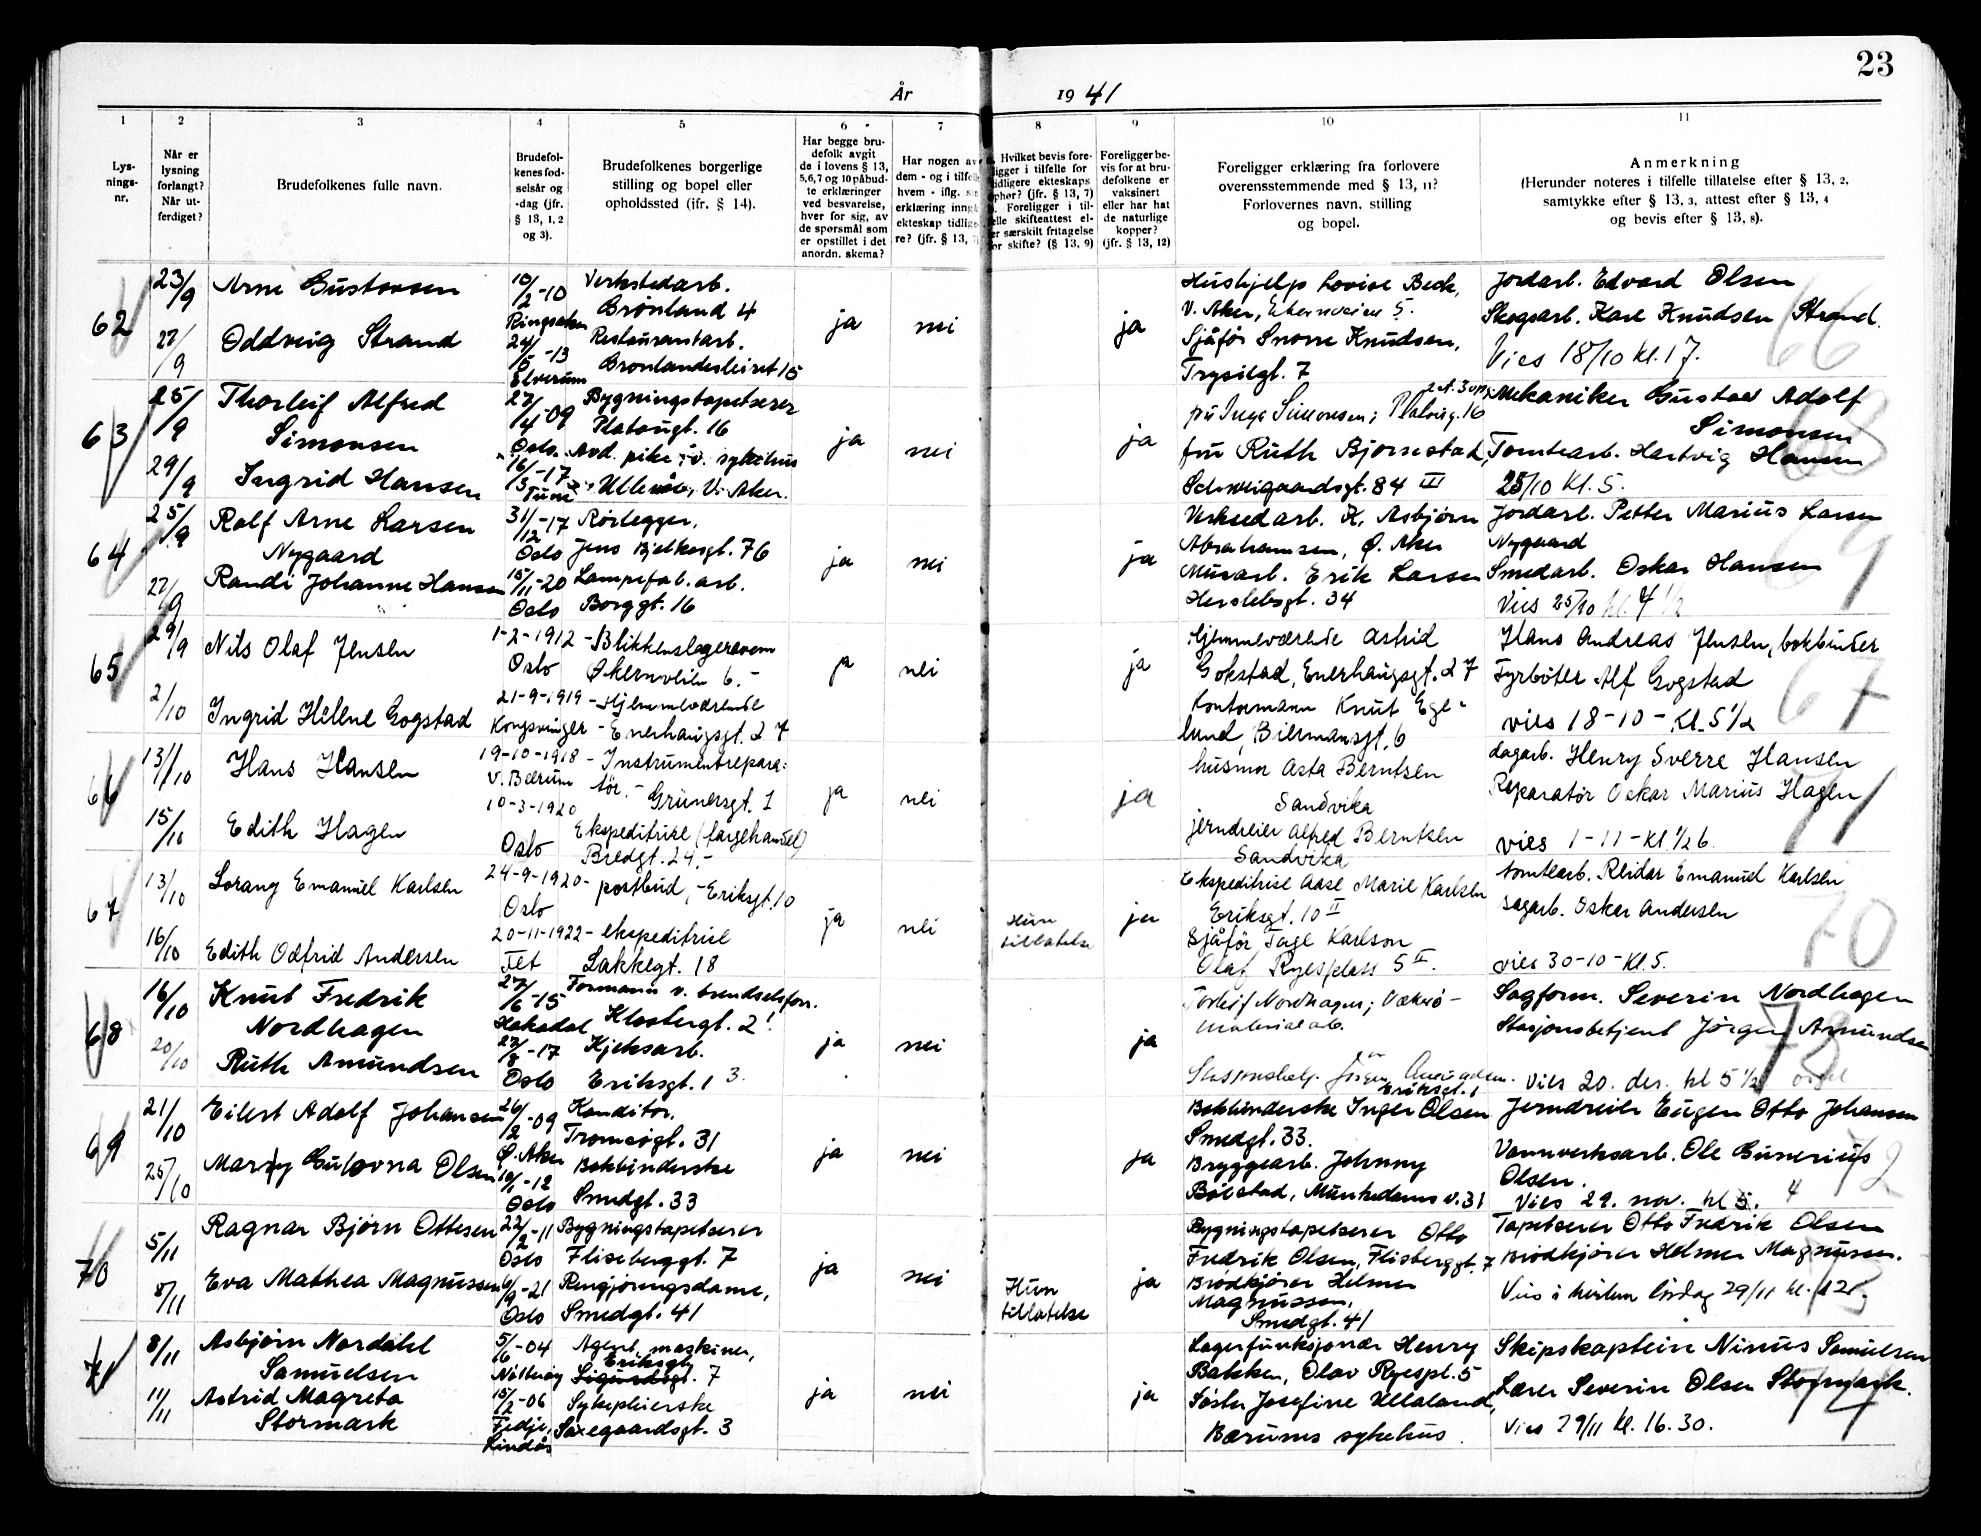 23
År 1941
1 2 3 4 5 6 7 8 9 10 11
Lys-
nings-
nr.
Når er
lysning
forlangt?
Når ut-
ferdiget?
Brudefolkenes fulle navn.
Brudefol-
kenes fød-
selsår og
-dag (jfr.
§ 13, 1, 2
og 3).
Brudefolkenes borgerlige
stilling og bopel eller
opholdssted (ifr. § 14).
Har begge bru-
defolk avgit
de i lovens § 13,
5,6,7 og 10 påbud-
te erklæringer
ved besvarelse,
hver for sig, av
de spørsmål som
er opstillet i det
anordn. skema?
Har nogen av
dem - og i tilfelle
hvem - iflg. sin
erklæring inngått
ekteskap tidlige-
re? (jfr. § 13,
Hvilket bevis fore-
ligger i tilfelle for
tidligere ekteskaps
ophør? (jfr. § 13, 7)
Foreligger i til-
felle skifteattest el-
er særskilt fritagelse
for skifte? (§ 13, 9)
Foreligger be-
vis for at bru-
defolkene er
vaksinert
eller har hat
de naturlige
kopper?
(jfr. § 13, 12)
Foreligger erklæring fra forlovere
overensstemmende med § 13, 11?
Forlovernes navn, stilling
og bopel.
Anmerkning
(Herunder noteres i tilfelle tillatelse efter § 13, 2,
samtykke efter § 13, 3, attest efter § 13, 4
og bevis efter § 13, 8).
62
23/9
27/9
Arne Gustavsen
Oddveig Strand
10/2-10
Ringsaker
24/5-13
Elverum
Verkstedarb.
Grønland 4
Restaurantarb.
Grønlandsleiret 15
ja
nei
ja
Hushjelp Lovise Beck,
V. Aker,
Sjåfør Snorre Knudsen,
Trysilgt. 7
Jordarb. Edvard Olsen
Skogsarb. Karl Knudsen Strand.
Vies 18/10 kl. 17.
66
63
25/9
29/9
Thorleif Alfred
Simonsen
Ingrid Hansen
27/4-09
Oslo.
16/3-17
Tune
Bygningstapetserer
Platougt. 16
Avd. pike v. sykehus
Ullevål, V. Aker.
ja
nei
ja
Inga Simonsen; 16
fru Ruth Bjørnestad,
Schweigaardsgt. 84 III
Mekaniker Gustav Adolf
Simonsen
Tomtearb. Hartvig Hansen
25/10 kl. 5.
68
64
25/9
27/9
Rolf Arne Larsen
Nygaard
Randi Johanne Hansen
31/12-17
Oslo
15/11-20
Oslo
Rørlegger,
Jens Bjelkesgt. 76
Lampefab. arb.
Borggt. 16
ja
nei
ja
Verksedarb. K. Asbjørn
Abrahamsen, Ø. Aker
Murarb. Erik Larsen
Herslebsgt. 34
Jordarb. Petter Marius Larsen
Nygaard
Smedarb. Oskar Hansen
Vies 25/10 kl. 4 1/2
69
65
29/9
2/10
Nils Olaf Jensen
Ingrid Helene Gogstad
1-2-1912
Oslo
21-9-1919
Kongsvinger
- Blikkenslagersvenn
Økernveien 6.-
- Hjemmeværende
- Enerhaugsgt. 27
ja
nei
ja
Hjemmeværende Astrid
Gokstad, Enerhaugsgt. 27
Kontormann Knut Ege-
lund, Biermansgt. 6
Hans Andreas Jensen, bokbinder
Fyrbøter Alf Gogstad
vies 18-10- kl. 5 1/2
67
66
13/10
15/10
Hans Hansen
Edith Hagen
19-10-1918
V. Bærum
10-3-1920
Oslo
- Instrumentrepara-
tør.- Grünersgt. 1
Ekspeditrise (fargehandel)
Bredgt. 24.-
ja
nei
ja
husmor Asta Berntsen
Sandvika
jerndreier Alfred Berntsen
Sandvika
dagarb. Henry Sverre Hansen
Reparatør Oskar Marius Hagen
vies 1-11- kl. 1/2 6.
71
67
13/10
16/10
Lorang Emanuel Karlsen
Edith Odfrid Andersen
24-9-1920
Oslo
20-11-1922
Fet
- postbud, - Eriksgt. 10
- ekspeditrise
Lakkegt. 18
ja
nei
Hun
tillatelse
ja
Ekspeditrise Aase Marie Karlsen
Eriksgt. 10 II
Sjåfør Tage Karlson
Olaf Ryesplass 5 II.
tomtearb. Reidar Emanuel Karlsen
sagarb. Oskar Andersen
vies 30-10- kl. 5.
70
68
16/10
20/10
Knut Fredrik
Nordhagen
Ruth Amundsen
27/6-15
Hakadal
27/8-17
Oslo
Formann v. brendselsforr.
Klostergt. 2!
Kjeksarb.
Eriksgt. 1 3.
ja
nei
ja
Torleif Nordhagen; Vækerö-
materialarb.
Stasjonsbetj. Jörgen Amundsen.
Eriksgt. 1
Sagform. Severin Nordhagen
Stasjonsbetjent Jørgen Amundsen
Vies 20. des. kl 5 1/2
69
21/10
25/10
Eilert Adolf Johansen
Marry Gulovna Olsen
26/2-09
Ø. Aker
10/1-12
Oslo
Konditor,
Tromsøgt. 31
Bokbinderske
Smedgt. 33
ja
nei
ja
Bokbinderske Inger Olsen
Smedgt. 33.
Bryggearb. Johnny
Bølstad, Munkedams v. 31
Jerndreier Eugen Otto Johansen
Vannverksarb. Ole Gunerius
Olsen.
Vies 29. nov. kl 5. 4
72
70
5/11
8/11
Ragnar Bjørn Ottesen
Eva Mathea Magnussen
22/2-11
Oslo
6/9-21
Oslo
Bygningstapetserer
Fliseberggt. 7
Rengjøringsdame,
Smedgt. 41
ja
nei
Hun
tillatelse
ja
Bygningstapetserer Otto
Fredrik Olsen, Flisberggt. 7
Brødkjører Helmer
Magnussen,
Smedgt. 41
Tapetserer Otto Fredrik Olsen
Brødkjører Helmer Magnussen.
Vies i kirken lördag 29/11 kl. 12.
73
71
8/11
11/11
Asbjørn Nordahl
Samuelsen
Astrid Magreta
Stormark
5/6-04
Nøtterøy
15/2-06
Fedje,
Lindås
Agent, maskiner,
Eriksgt.
Sigurdsgt. 7
Sykepleierske
Saxegaardsgt. 3
ja
nei
ja
Lagerfunksjonær Henry
Bakken, Olav Ryespl. 5
Søster Josefine Ullaland,
Bærums sykehus.
Skipskaptein Ninus Samuelsen
Lærer Severin Olsen Stormark.
Vies 29/11 kl. 16.30.
74